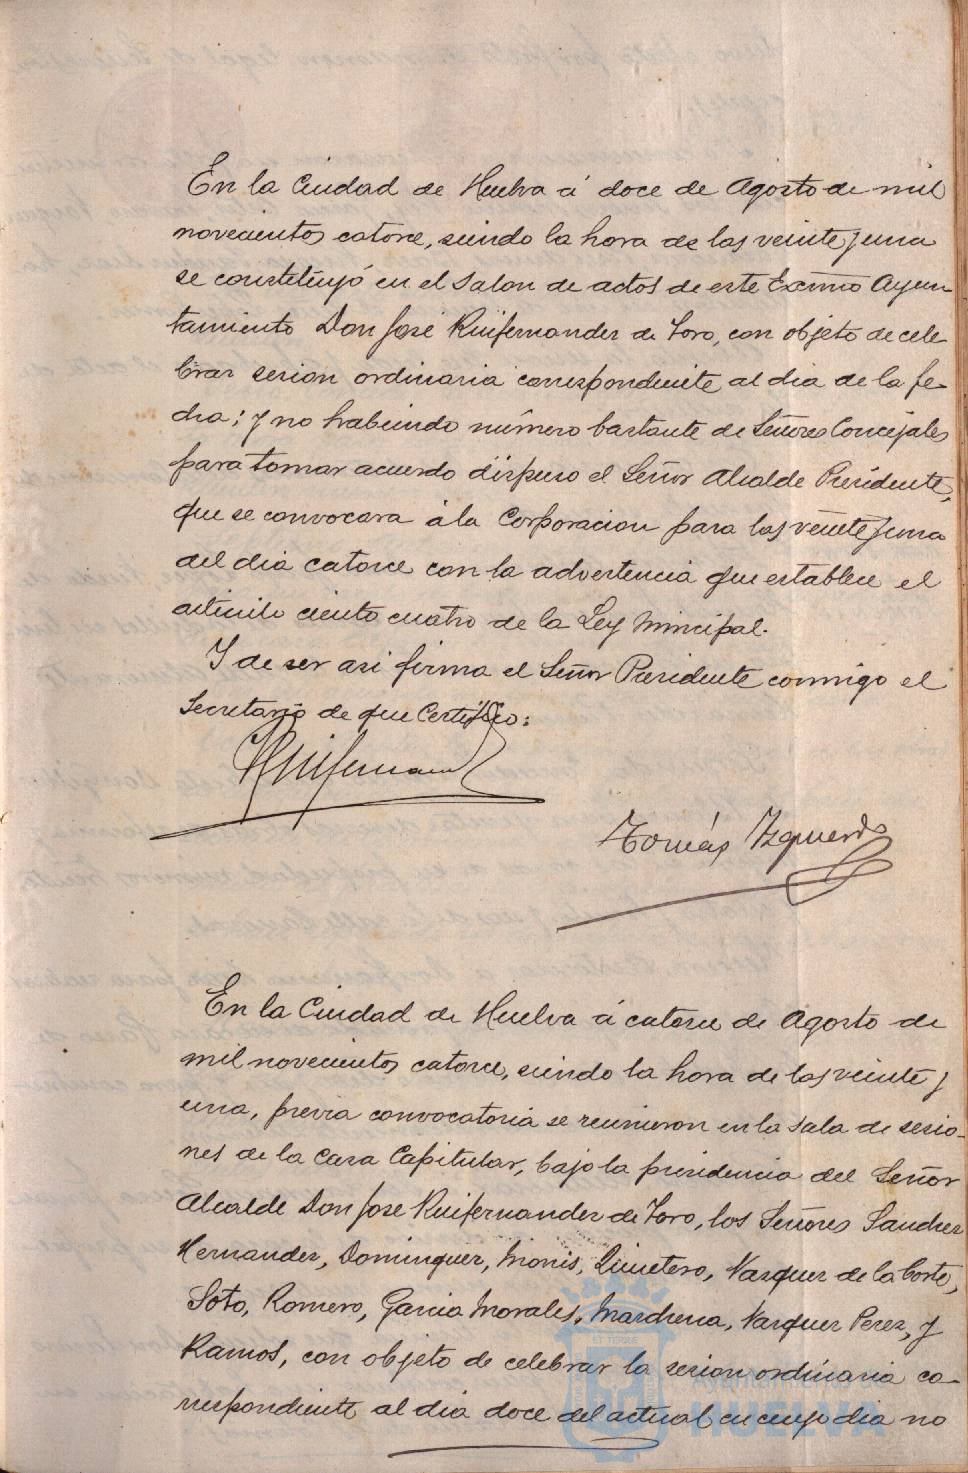 En la Ciudad de Huelva á doce de Agosto de mil
novecientos catorce, siendo la hora de las veinte y una
se constituyó en el salon de actos de este Excmo Ayun-
tamiento Don José Ruifernandez de Toro, con objeto de cele-
brar sesion ordinaria correspondiente al dia de la fe-
cha; y no habiendo número bastante de Señores Concejales
para tomar acuerdo dispuso el Señor Alcalde Presidente,
que se convocara á la Corporacion para las veinte y una
del dia catorce con la advertencia que establece el
articulo ciento cuatro de la Ley Municipal.
Y de ser asi firma el Señor Presidente conmigo el
Secretario de que Certifico:
Ruifernandez
Tomás Izquierdo
En la Ciudad de Huelva á catorce de Agosto de
mil novecientos catorce, siendo la hora de las veinte y
una, previa convocatoria se reunieron en la sala de sesio-
nes de la Casa Capitular, bajo la presidencia del Señor
Alcalde Don José Ruifernandez de Toro, los Señores Sanchez
Hernandez, Dominguez, Monis, Quintero, Vazquez de la Corte,
Soto, Romero, Garcia Morales, Marchena, Vazquez Perez, y
Ramos, con objeto de celebrar la sesion ordinaria co-
rrespondiente al dia doce del actual en cuyo dia no
Ayuntamiento de
HUELVA